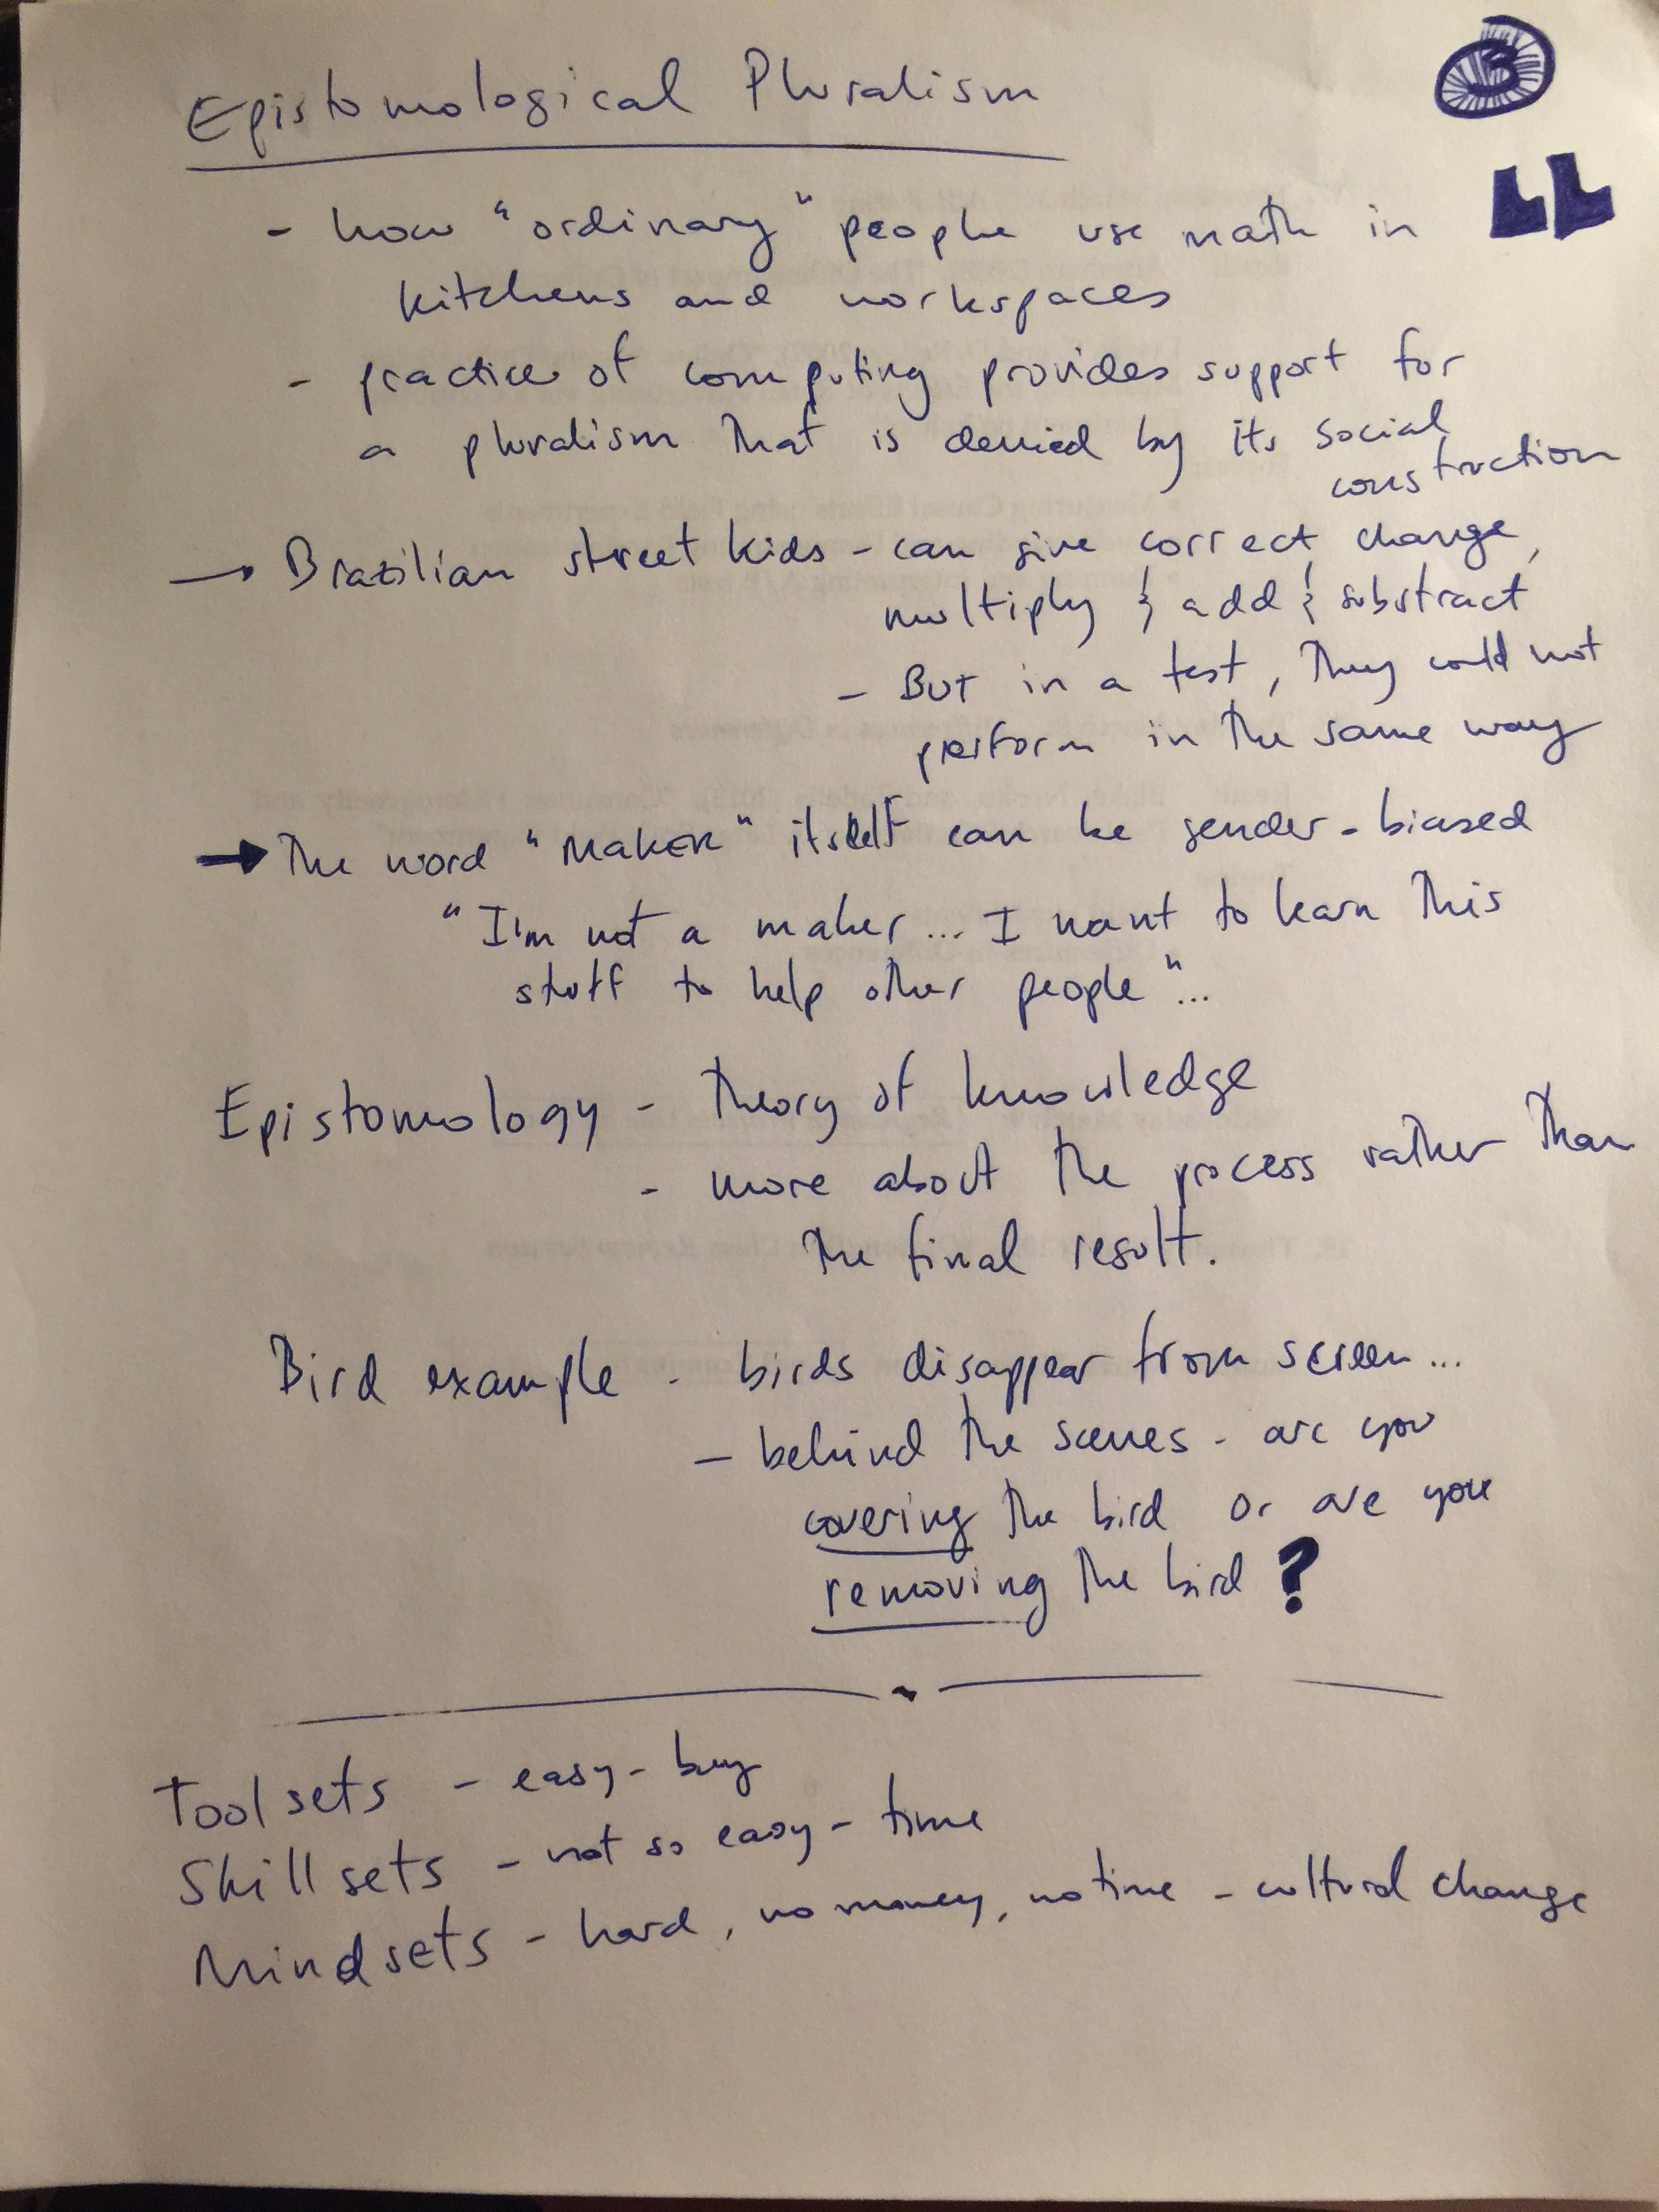 Epistomological Pluralism
3
LL
- how "ordinary" people use math in
kitchens and workspaces
- practice of computing provides support for
a pluralism that is denied by its social
construction
→ Brazilian street kids - can give correct change,
multiply & add & substract
- But in a test, they could not
perform in the same way
→ The word "Maker" itself can be gender-biased
"I'm not a maker... I want to learn this
stuff to help other people"...
Epistomology - theory of knowledge
- more about the process rather than
the final result.
Bird example - birds disappear from screen...
- behind the scenes - are you
covering the bird or are you
removing the bird ?
Toolsets - easy - buy
Skillsets - not so easy - time
Mindsets - hard, no money, no time - cultural change